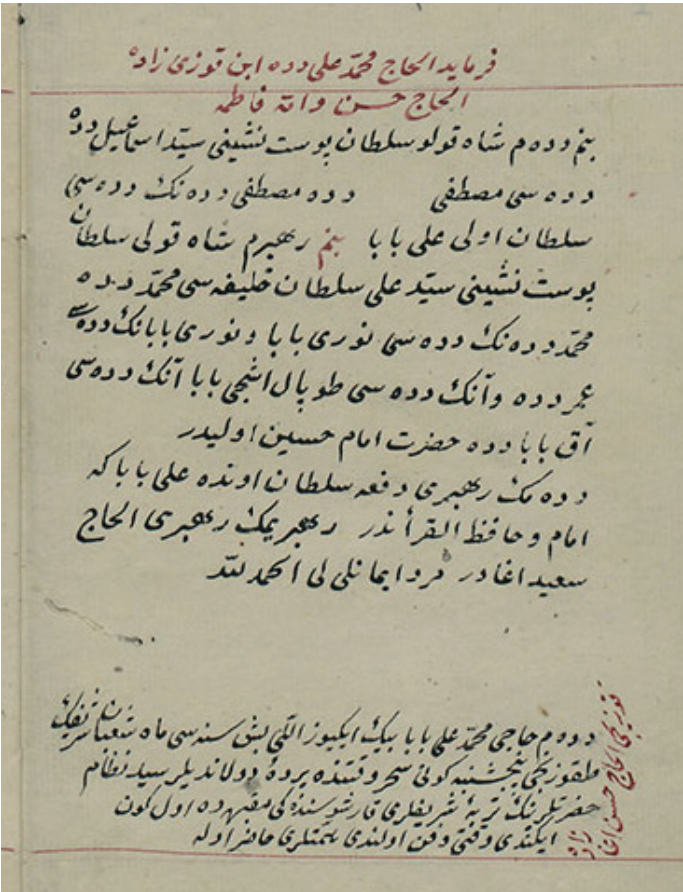 فرمايد الحاج محمّد على دده ابن قوزى زاده
الحاج حسن وامّه فاطمه
بنم دده م شاه قولو سلطان پوست نشينى سيّد اسماعيل دده
دده سى مصطفى دده مصطفى دده نك دده سى
سلطان اولى على بابا بنم رهبرم شاه قولى سلطان
پوست نشينى سيّد على سلطان خليفه سى محمّد دده
محمّد دده نك دده سى نورى بابا و نورى بابانك دده سى
دده و آنك دده سى طوپال بابا آنك دده سى
آق بابا دده حضرت امام حسين اوليدر
دده مك رهبرى دفعه سلطان اونده على بابا كه
امام و حافظ القرأندر رهبريمك رهبرى الحاج
سعيد اغادر مرد ايمانلى لى الحمد لله
دده م حاجى محمّد على بابا بيك ايكيوز اللى بش سنه سى ماه شعبان شريفك
طقوزنجى پنجشنبه كونى سحر وقتنده پرده دولانديلر سيد نظام
حضرتلرينك تربه شريفلرى قارشوسنده كى مقبره ده اول كون
ايكندى وقتى دفن اولندى همتلرى حاضر اوله
قوزيجى الحاج حسن اغا
زاده